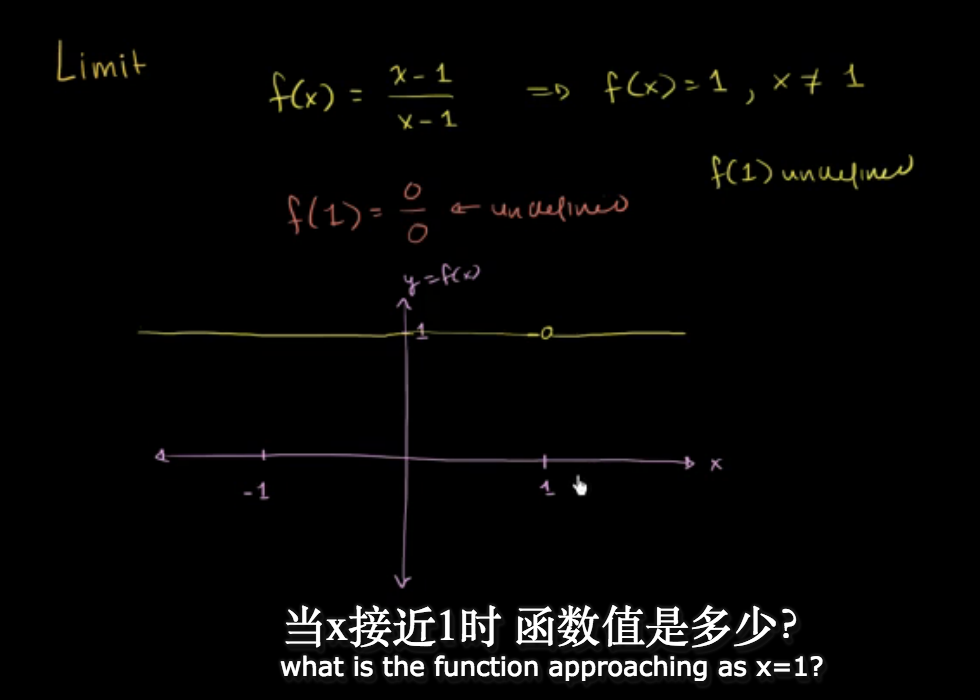 Limit
f(x) = (x-1)/(x-1) ⇒ f(x) = 1, x ≠ 1
f(1) undefined
f(1) = 0/0 ← undefined
y = f(x)
1
x
-1 1
当x接近1时 函数值是多少?
what is the function approaching as x=1?